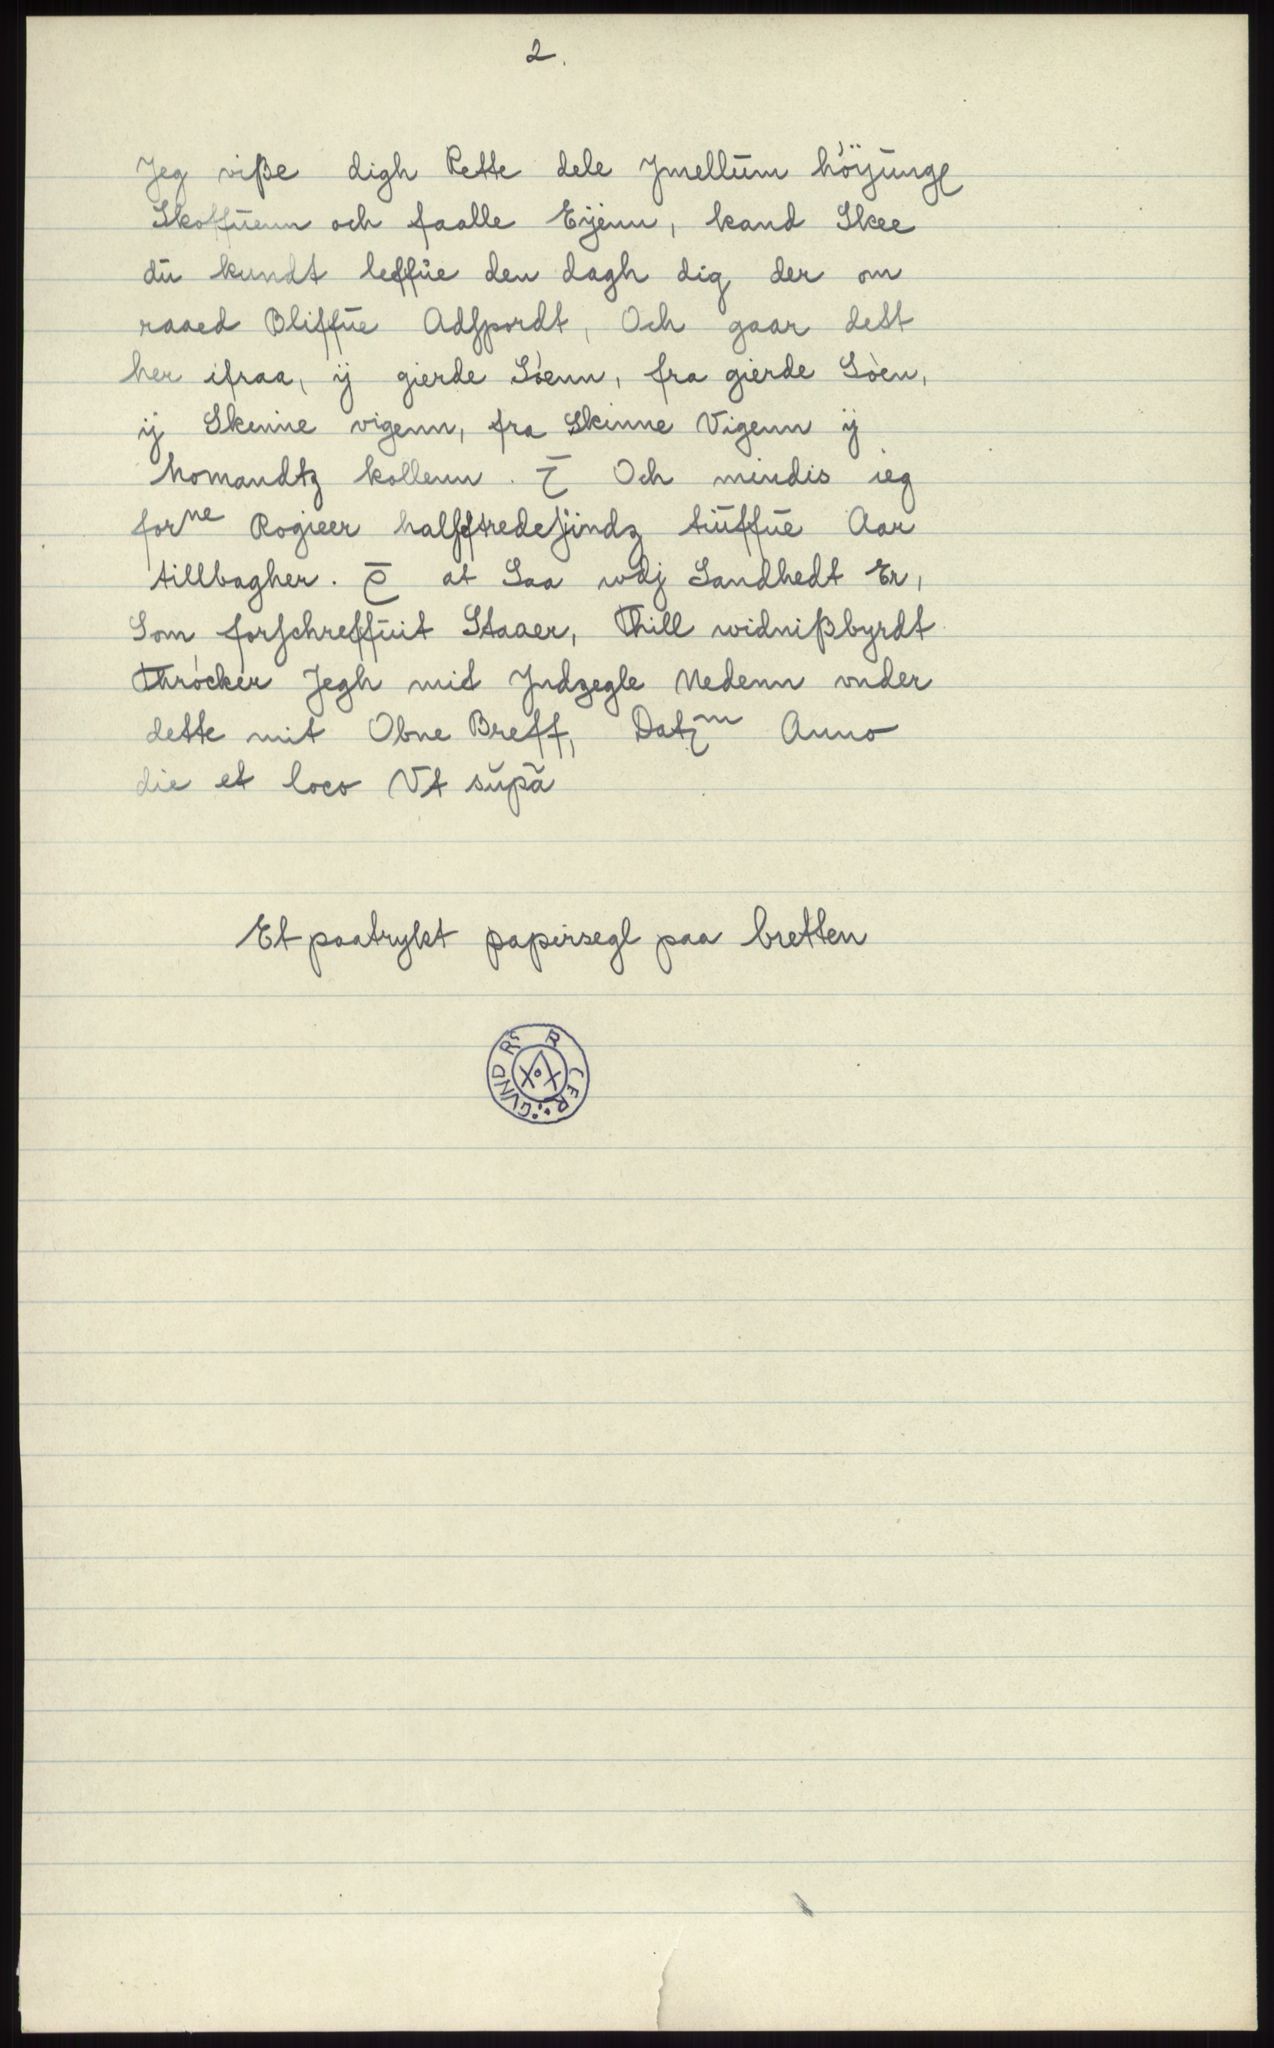 2.
Jeg viße digh Rette dele Jmellūm höÿūnge
Skoffūenn och faalle Eÿenn, kand Skee
dū kundt leffūe den dagh dig der om
raaed Bliffūe Adspordt, Och gaar dett
her ifraa, ÿ gierde Sòenn, fra gierde Sòen,
ÿ Skinne vigenn, fra Skinne Vigenn ÿ
homandtz kollenn. Och mindis ieg
forne Rogieer halfftredesindz tiūffūe Aar
tillbagher. at Saa wdj Sandhedt Er,
Som forschreffūit Staaer, Thill widnißbyrdt
Thrócker Jegh mit Jndzegle Nedenn vnder
dette mit Obne Breff, Datm Anno
die et loco Vt sūpā
Et paatrykt papirsegl paa bretten
GVND RS B CER